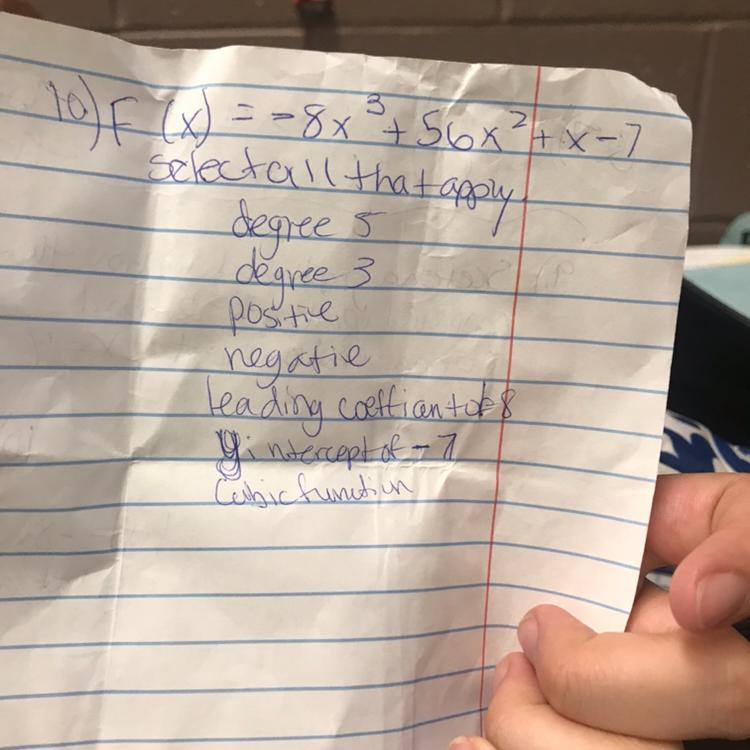 10) F (x) = -8x³ + 56x² + x - 7
select all that apply
degree 5
degree 3
positie
negatie
leading coefficant of -8
y intercept of -7
Cubic function